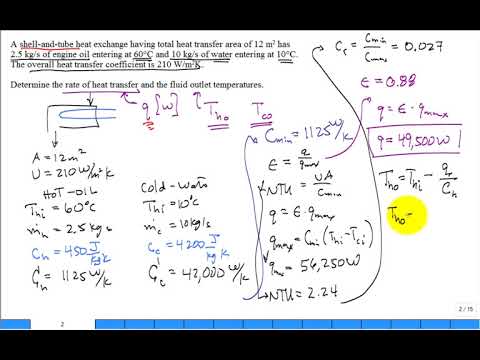 A shell-and-tube heat exchange having total heat transfer area of 12 m² has
2.5 kg/s of engine oil entering at 60°C and 10 kg/s of water entering at 10°C.
The overall heat transfer coefficient is 210 W/m²K.
Determine the rate of heat transfer and the fluid outlet temperatures.
q [W] T_ho T_co
A = 12m²
U = 210 W/m²K
HOT - OIL
T_hi = 60°C
ṁ_h = 2.5 kg/s
C_h = 450 J/kg K
Ċ_h = 1125 W/K
Cold - Water
T_ci = 10°C
ṁ_c = 10 kg/s
C_c = 4200 J/kg K
Ċ_c = 42,000 W/K
C_min = 1125 W/K
ε = q/q_max
NTU = UA/C_min
q = ε · q_max
q_max = C_min (T_hi - T_ci)
q_max = 56,250 W
NTU = 2.24
C_r = C_min/C_max = 0.027
ε = 0.88
q = ε · q_max
q = 49,500 W
T_ho = T_hi - q/C_h
T_ho =
2
2 / 15